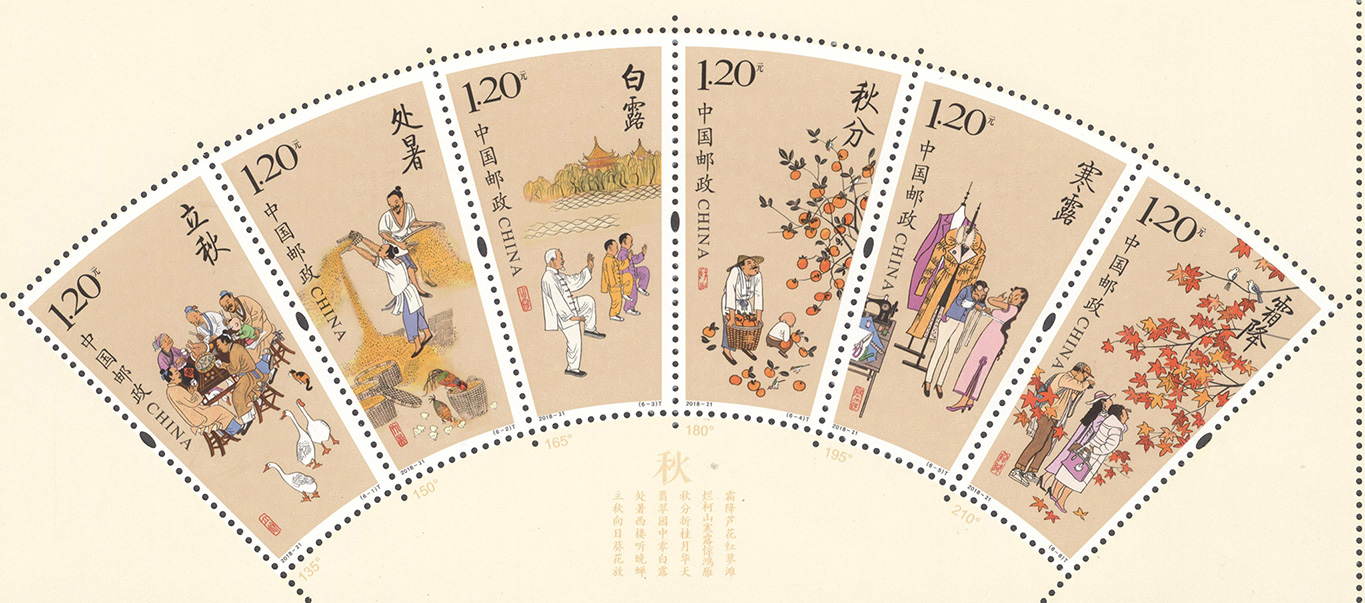 1.20元
中国邮政 CHINA
立秋
2018-21
(6-1)T
1.20元
中国邮政 CHINA
处暑
2018-21
(6-2)T
1.20元
中国邮政 CHINA
白露
2018-21
(6-3)T
1.20元
中国邮政 CHINA
秋分
2018-21
(6-4)T
1.20元
中国邮政 CHINA
寒露
2018-21
(6-5)T
1.20元
中国邮政 CHINA
霜降
2018-21
(6-6)T
135°
150°
165°
180°
195°
210°
秋
立秋向日葵花放
处暑西楼听晚蝉
翡翠园中零白露
秋分折桂月华天
烂柯山寒露惊鸿雁
霜降芦花红蓼滩